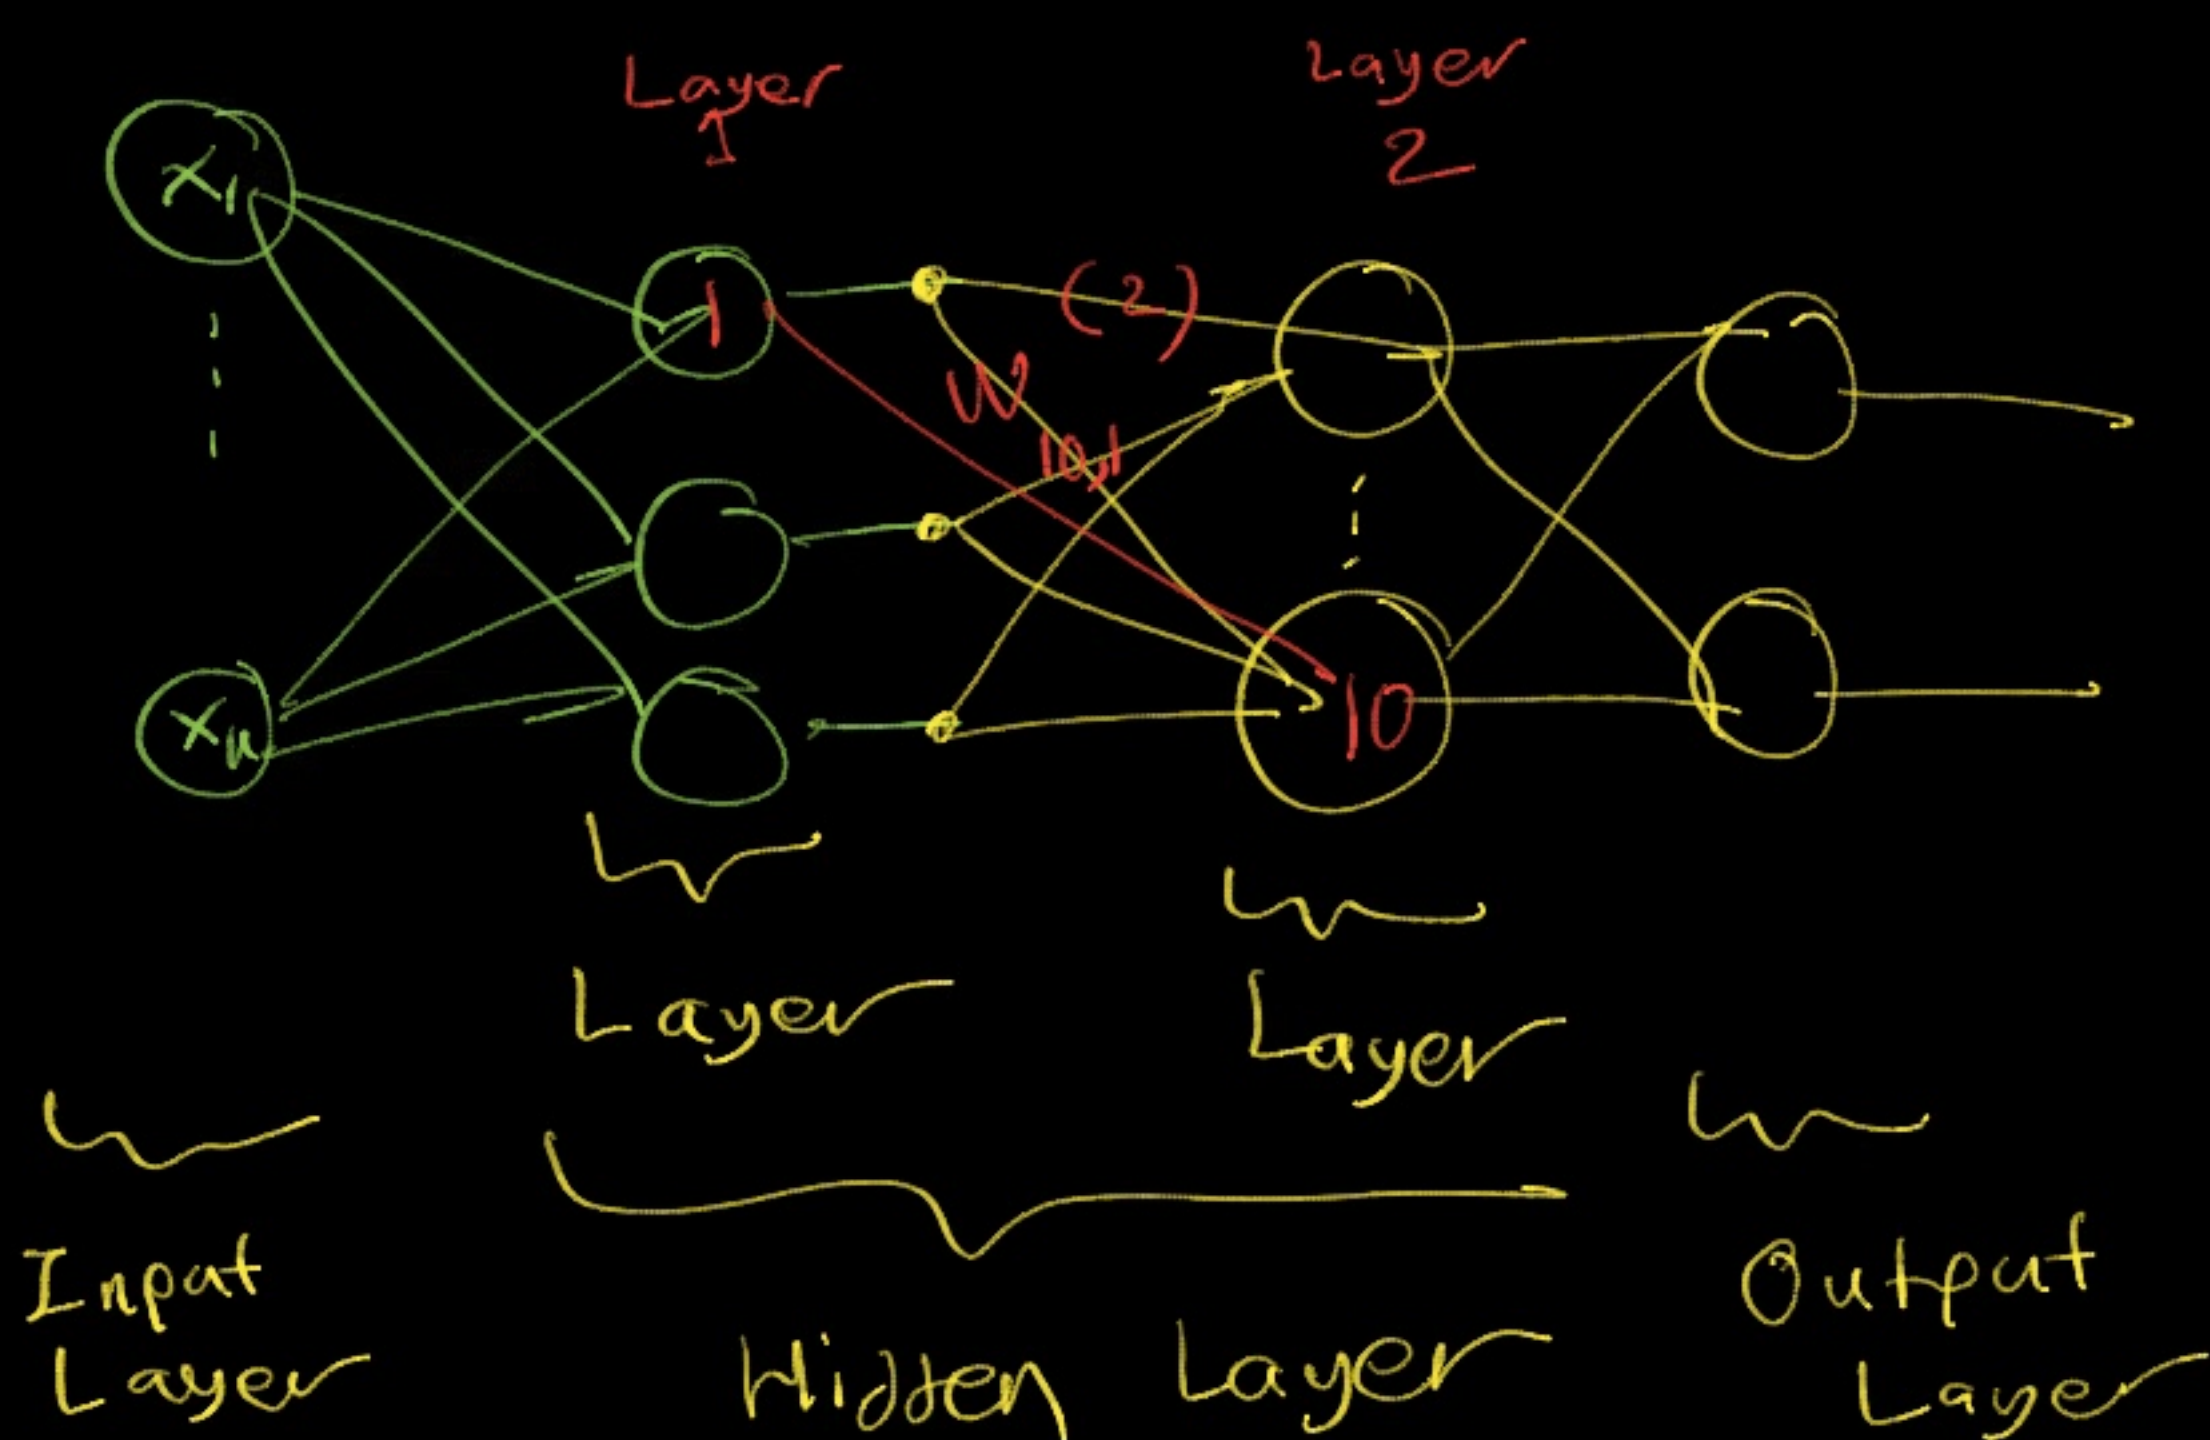 Layer
1
Layer
2
x1
1
(2)
W
10,1
xn
10
Layer
Layer
Input
Layer
Hidden Layer
Output
Layer